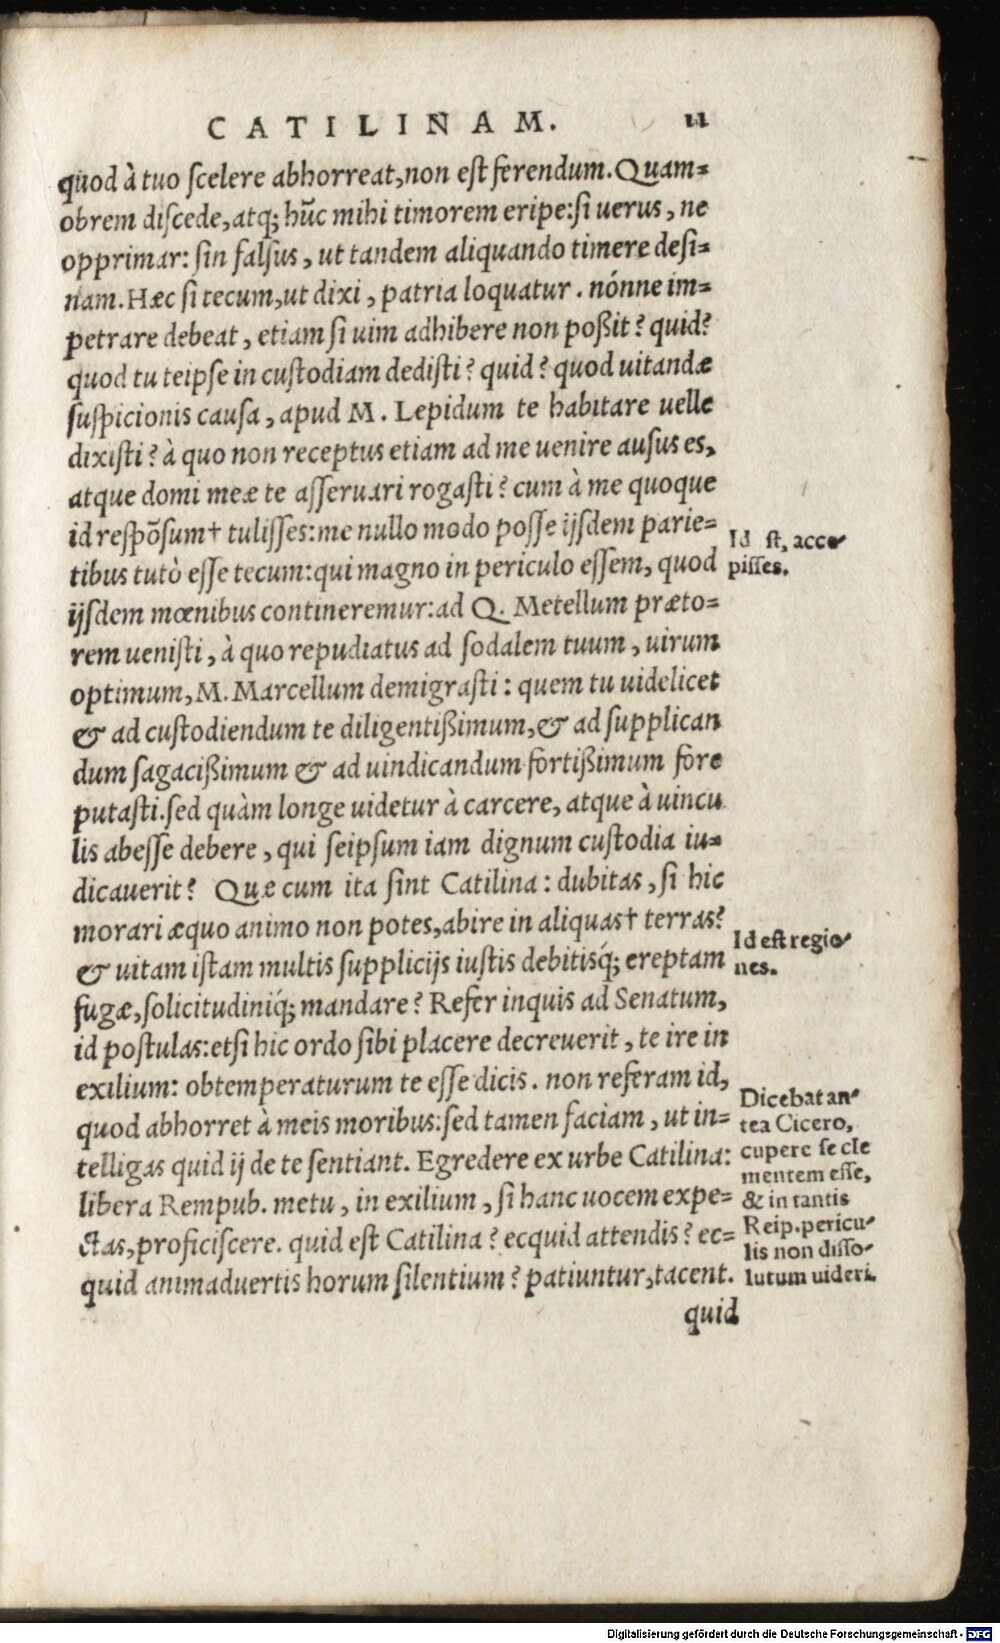 CATILINAM. 11
quod à tuo ſcelere abhorreat, non eſt ferendum. Quam-
obrem diſcede, atq; hūc mihi timorem eripe: ſi uerus, ne
opprimar: ſin falſus, ut tandem aliquando timere deſi-
nam. Hæc ſi tecum, ut dixi, patria loquatur. nónne im-
petrare debeat, etiam ſi uim adhibere non poßit? quid?
quod tu teipſe in cuſtodiam dediſti? quid? quod uitandæ
ſuſpicionis cauſa, apud M. Lepidum te habitare uelle
dixiſti? à quo non receptus etiam ad me uenire auſus es,
atque domi meæ te aſſeruari rogaſti? cum à me quoque
id reſpōſum† tuliſſes: me nullo modo poſſe ijſdem parie-
tibus tutò eſſe tecum: qui magno in periculo eſſem, quod
ijſdem mœnibus contineremur: ad Q. Metellum præto-
rem ueniſti, à quo repudiatus ad ſodalem tuum, uirum
optimum, M. Marcellum demigraſti: quem tu uidelicet
& ad cuſtodiendum te diligentißimum, & ad ſupplican
dum ſagacißimum & ad uindicandum fortißimum fore
putaſti. ſed quàm longe uidetur à carcere, atque à uincu
lis abeſſe debere, qui ſeipſum iam dignum cuſtodia iu-
dicauerit? Quæ cum ita ſint Catilina: dubitas, ſi hic
morari æquo animo non potes, abire in aliquas† terras?
& uitam iſtam multis ſupplicijs iuſtis debitisq́; ereptam
fugæ, ſolicitudiniq́; mandare? Refer inquis ad Senatum,
id poſtulas: etſi hic ordo ſibi placere decreuerit, te ire in
exilium: obtemperaturum te eſſe dicis. non referam id,
quod abhorret à meis moribus: ſed tamen faciam, ut in-
telligas quid ij de te ſentiant. Egredere ex urbe Catilina:
libera Rempub. metu, in exilium, ſi hanc uocem expe-
ctas, proficiſcere. quid eſt Catilina? ecquid attendis? ec-
quid animaduertis horum ſilentium? patiuntur, tacent.
quid
Id ſt, acce-
piſſes.
Id eſt regio-
nes.
Dicebat an-
tea Cicero,
cupere ſe cle
mentem eſſe,
& in tantis
Reip. pericu-
lis non diſſo-
lutum uideri.
Digitalisierung gefördert durch die Deutsche Forschungsgemeinschaft - DFG